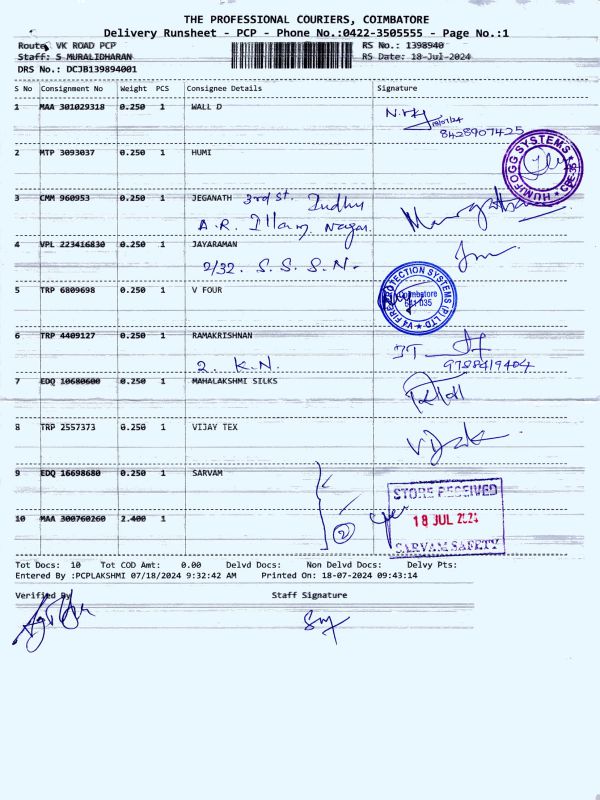 THE PROFESSIONAL COURIERS, COIMBATORE
Delivery Runsheet - PCP - Phone No.:0422-3505555 - Page No.:1
Route: VK ROAD PCP RS No.: 1398940
Staff: S MURALIDHARAN RS Date: 18-Jul-2024
DRS No.: DCJB139894001
S No Consignment No Weight PCS Consignee Details Signature
1 MAA 301029318 0.250 1 WALL D
18/07/24
8428907425
2 MTP 3093037 0.250 1 HUMI
HUMIFOGG SYSTEMS * CBE-35 *
3 CMM 960953 0.250 1 JEGANATH 3rd St. Indhu
A.R. Illam, Nagar.
4 VPL 223416830 0.250 1 JAYARAMAN
2/32. S.S.S.N.
5 TRP 6809698 0.250 1 V FOUR
V4 FIRE PROTECTION SYSTEMS (P) LTD
Coimbatore
641 035
6 TRP 4409127 0.250 1 RAMAKRISHNAN
2. K.N.
9788419404
7 EDQ 10680600 0.250 1 MAHALAKSHMI SILKS
8 TRP 2557373 0.250 1 VIJAY TEX
9 EDQ 16698680 0.250 1 SARVAM
STORE RECEIVED
18 JUL 2024
SARVAM SAFETY
10 MAA 300760260 2.400 1
2
Tot Docs: 10 Tot COD Amt: 0.00 Delvd Docs: Non Delvd Docs: Delvy Pts:
Entered By :PCPLAKSHMI 07/18/2024 9:32:42 AM Printed On: 18-07-2024 09:43:14
Verified By Staff Signature